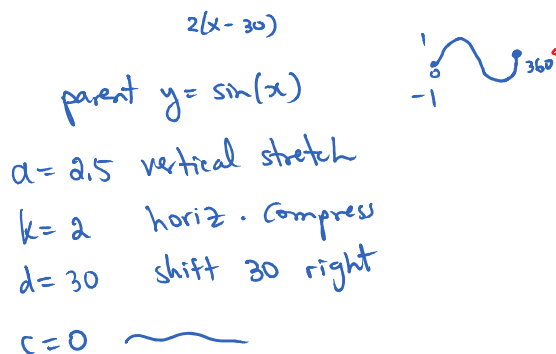 2(x - 30)
1
0
360°
-1
parent y = sin(x)
a = 2.5 vertical stretch
k = 2 horiz. compress
d = 30 shift 30 right
c = 0